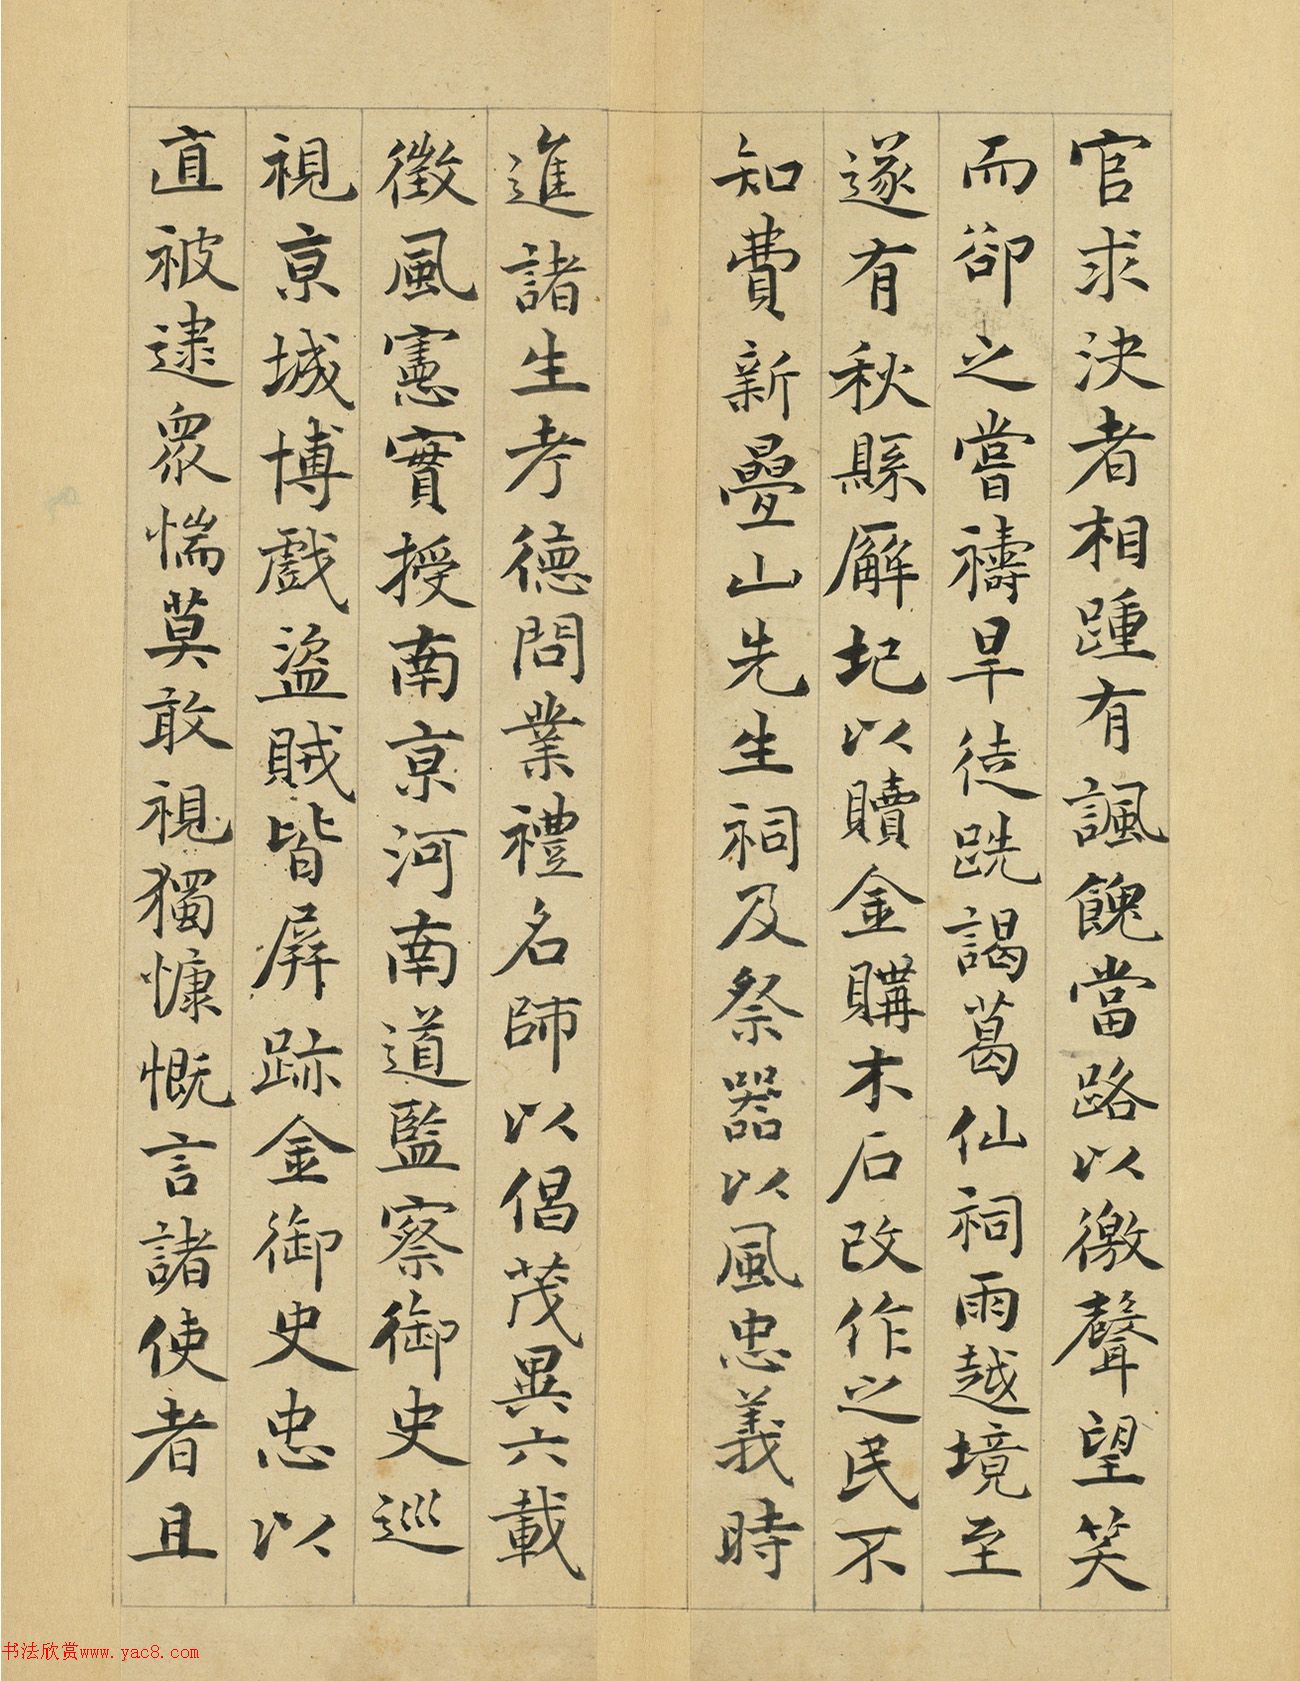 官求決者相踵有諷餽當路以徼聲望笑
而卻之嘗禱旱徒跣謁葛仙祠雨越境至
遂有秋縣廨圮以贖金購木石改作之民不
知費新疊山先生祠及祭器以風忠義時
進諸生考德問業禮名師以倡茂異六載
徵風憲實授南京河南道監察御史巡
視京城博戲盜賊皆屏跡金御史忠以
直被逮衆惴莫敢視獨慷慨言諸使者且
书法欣赏www.yac8.com